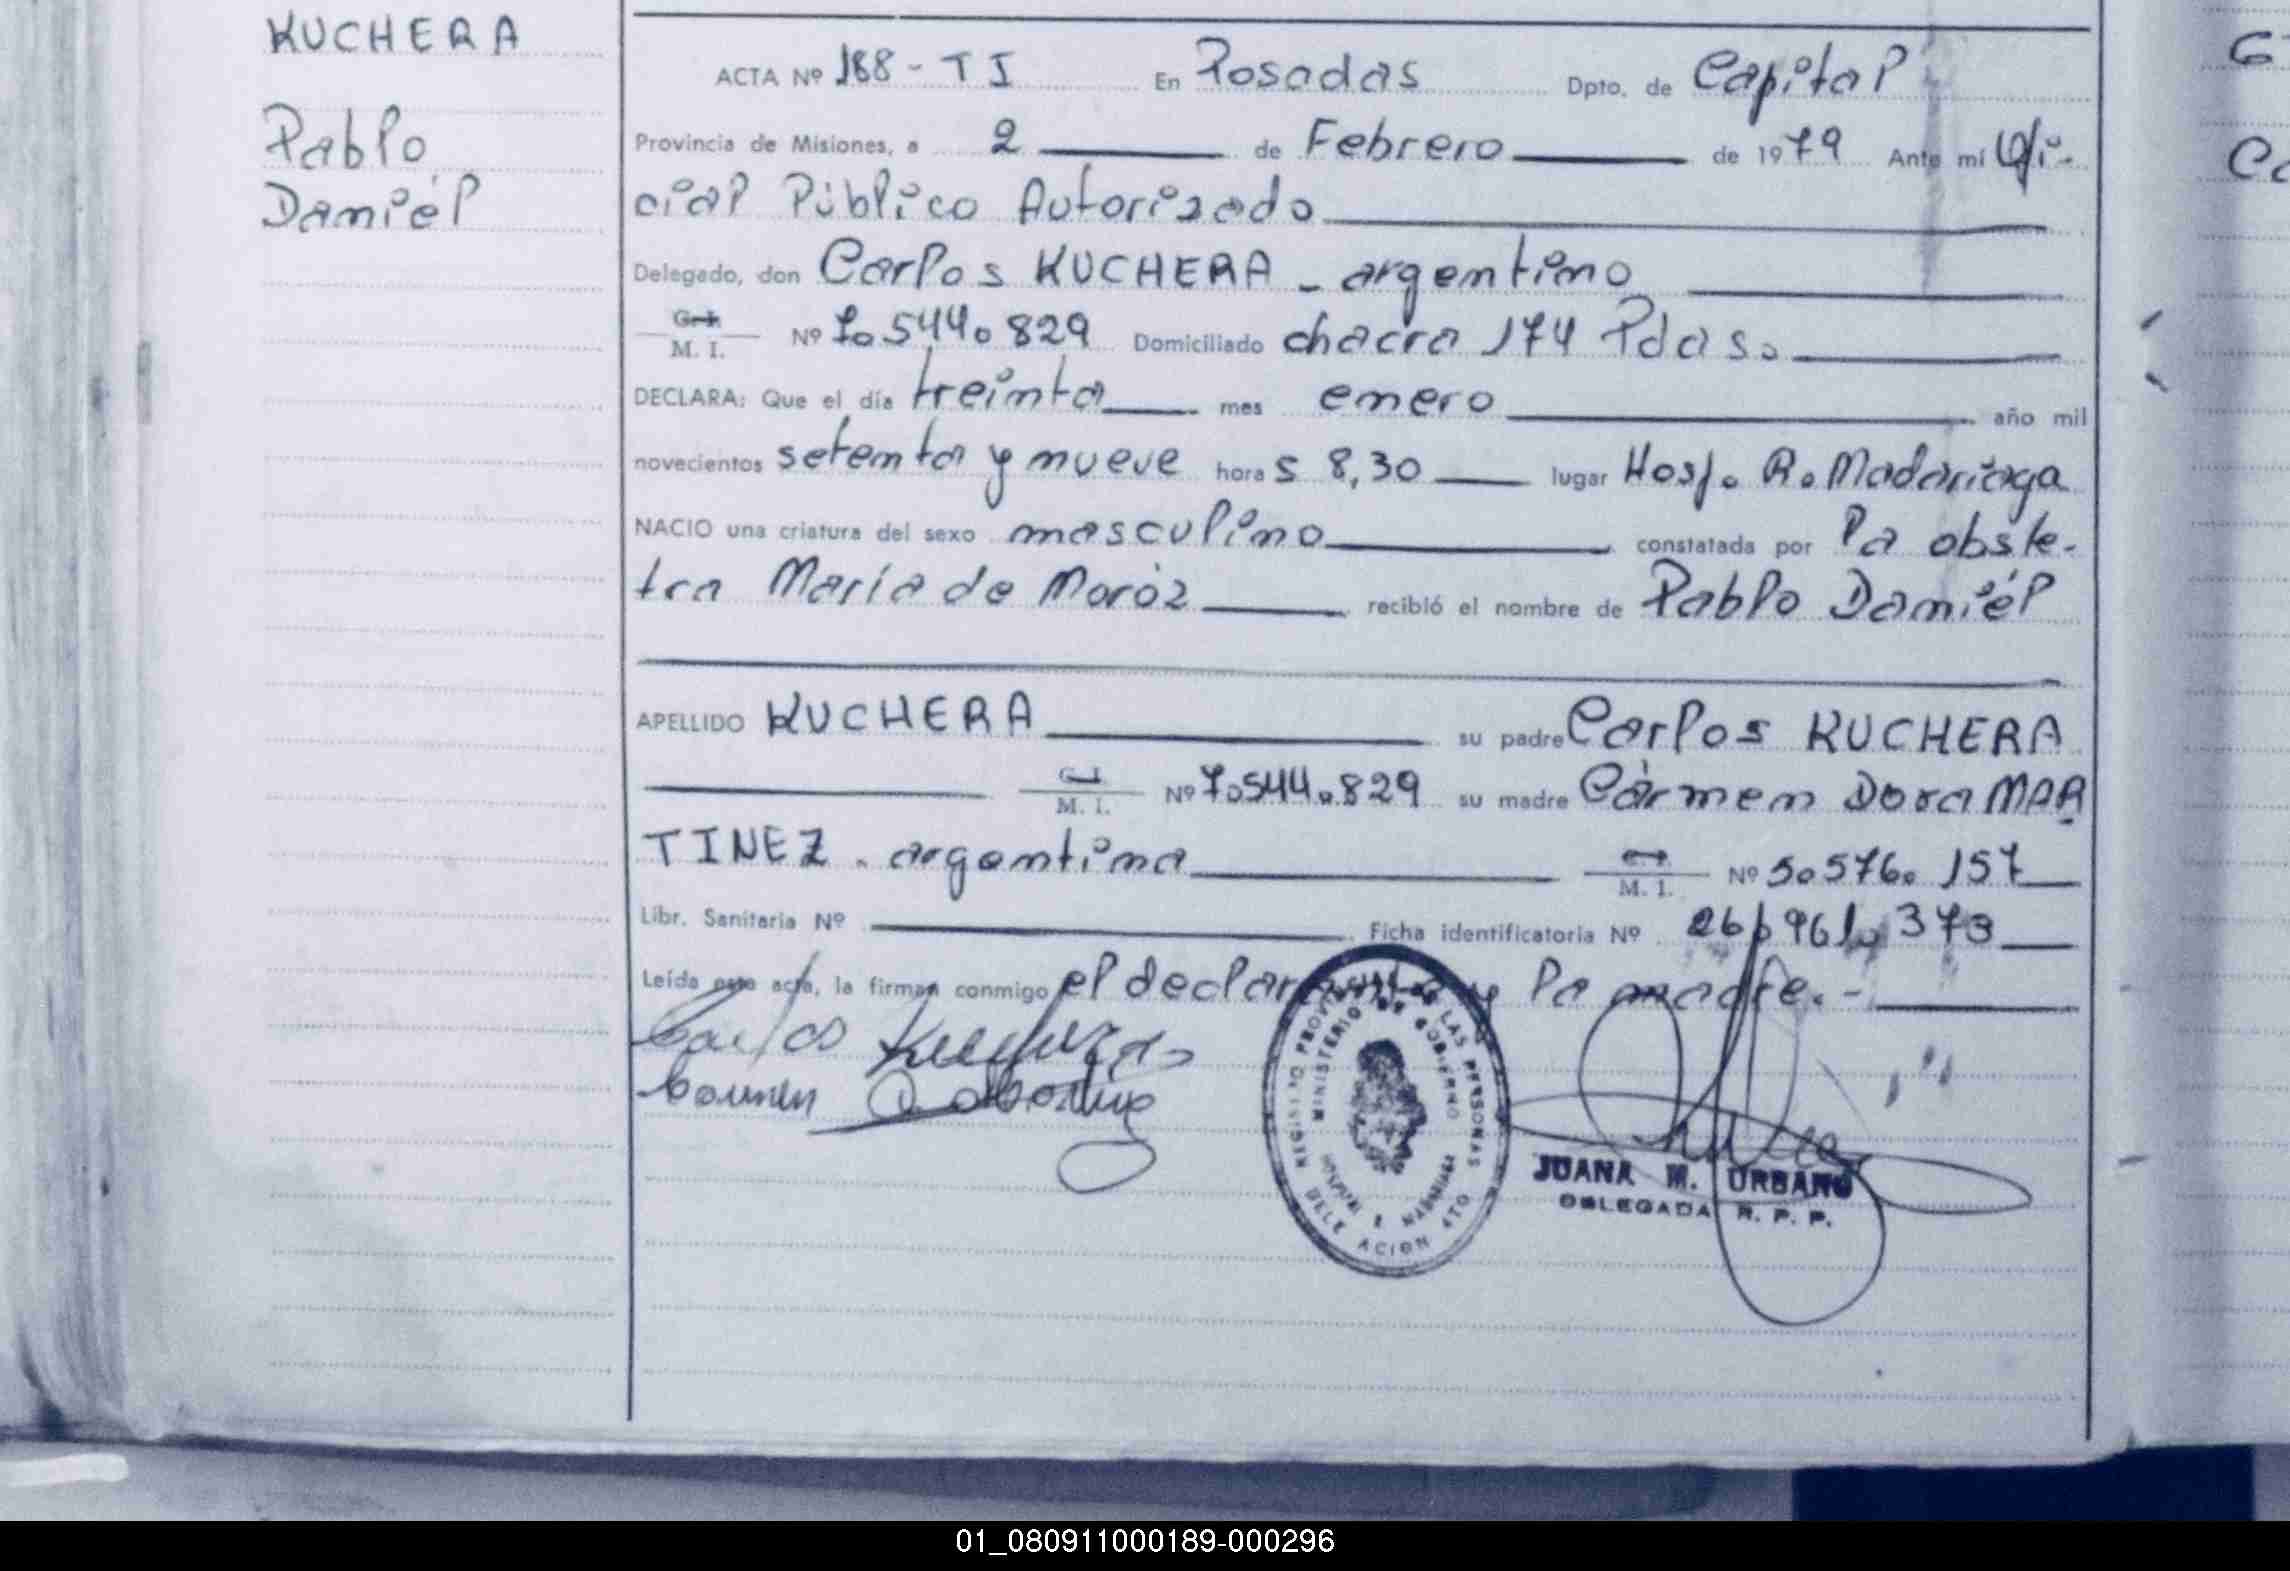 KUCHERA
Pablo
Daniel
ACTA Nº 188 - T I En Posadas Dpto. de Capital
Provincia de Misiones, a 2 de Febrero de 1979 Ante mi Ofi-
cial Público Autorizado
Delegado, don Carlos KUCHERA - argentino
C. I.
M. I. Nº 7.544.829 Domiciliado chacra 174 Pdas.
DECLARA: Que el día treinta mes enero año mil
novecientos setenta y nueve horas 8,30 lugar Hosp. R. Madariaga
NACIO una criatura del sexo masculino constatada por la obste-
tra María de Moróz recibió el nombre de Pablo Daniel
APELLIDO KUCHERA su padre Carlos KUCHERA
C. I.
M. I. Nº 7.544.829 su madre Cármen Dora MAR
TINEZ - argentina M. I. Nº 5.576.157
Libr. Sanitaria Nº Ficha identificatoria Nº 26.961.373
Leída esta acta, la firman conmigo el declarante y la madre. -
Carlos Kuchera
Carmen D
REGISTRO PROVINCIAL DE LAS PERSONAS
MINISTERIO DE GOBIERNO
HOSPITAL R MADARIAGA
DELEGACION 4TO
JUANA M. URBANO
DELEGADA R. P. P.
G
Ca
01_080911000189-000296